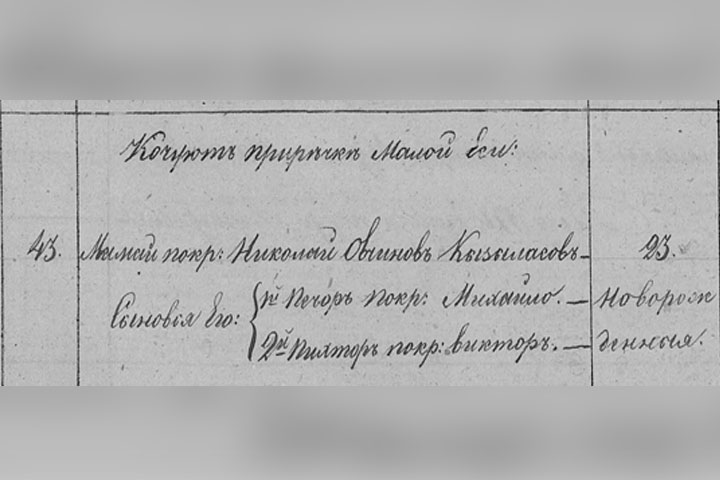 Кочуютъ прирѣчкѣ Малой Еси:
43. Мамай покр: Николай Овчиновъ Кызыласовъ 23.
Сыновья Его: 1й Печоръ покр: Михайло. — Новорож
2й Пикторъ покр: викторъ. — денныя.